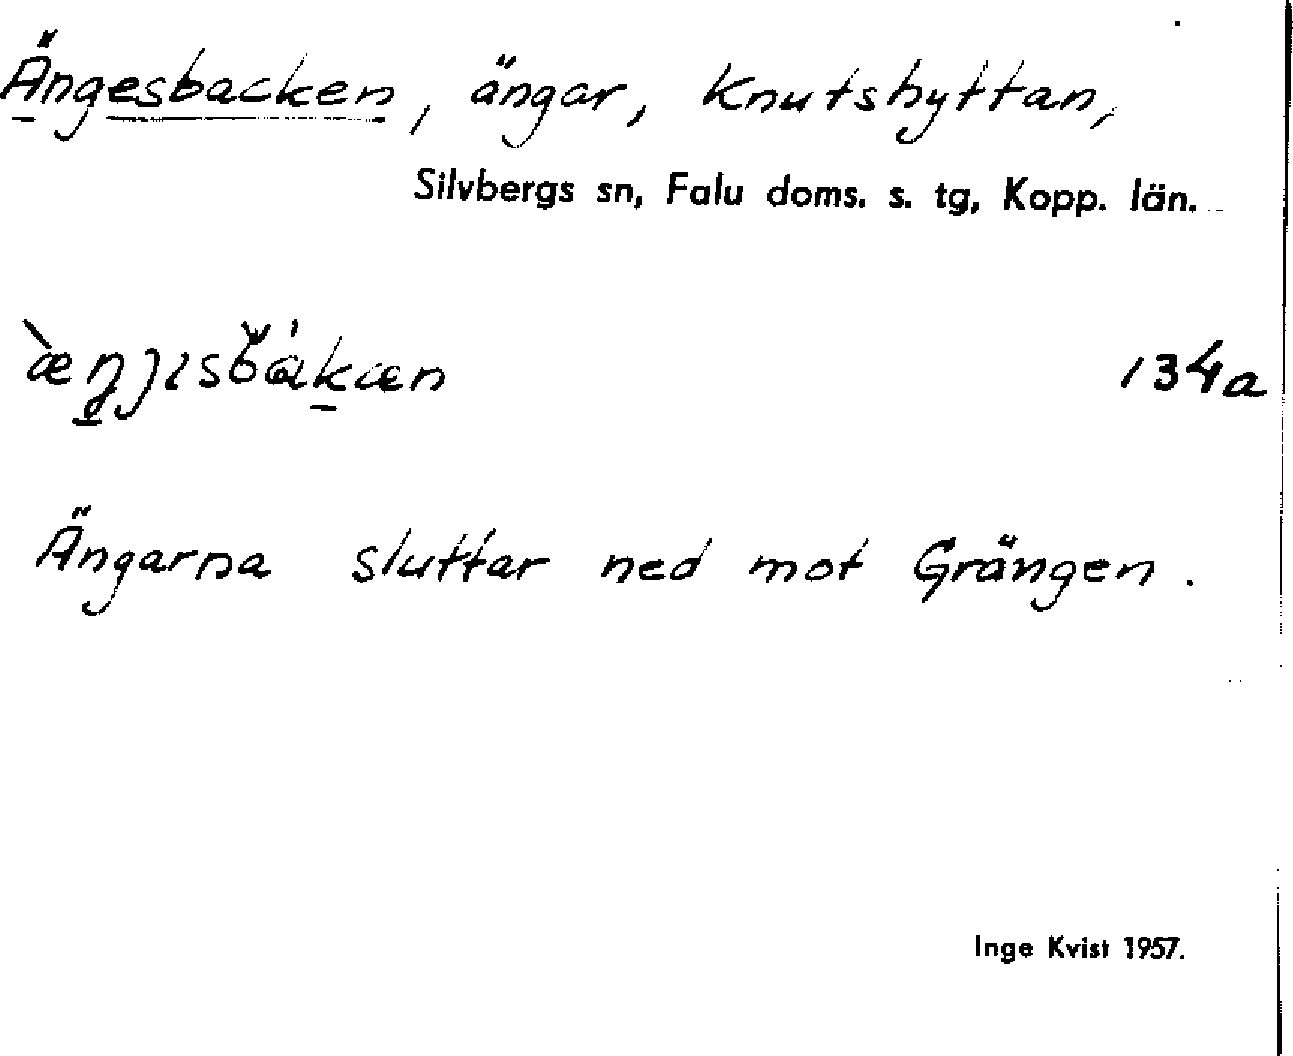 Ängesbacken, ängar, Knutshyttan,
Silvbergs sn, Falu doms. s. tg, Kopp. län.
134a
Ängarna sluttar ned mot Grängen.
Inge Kvist 1957.